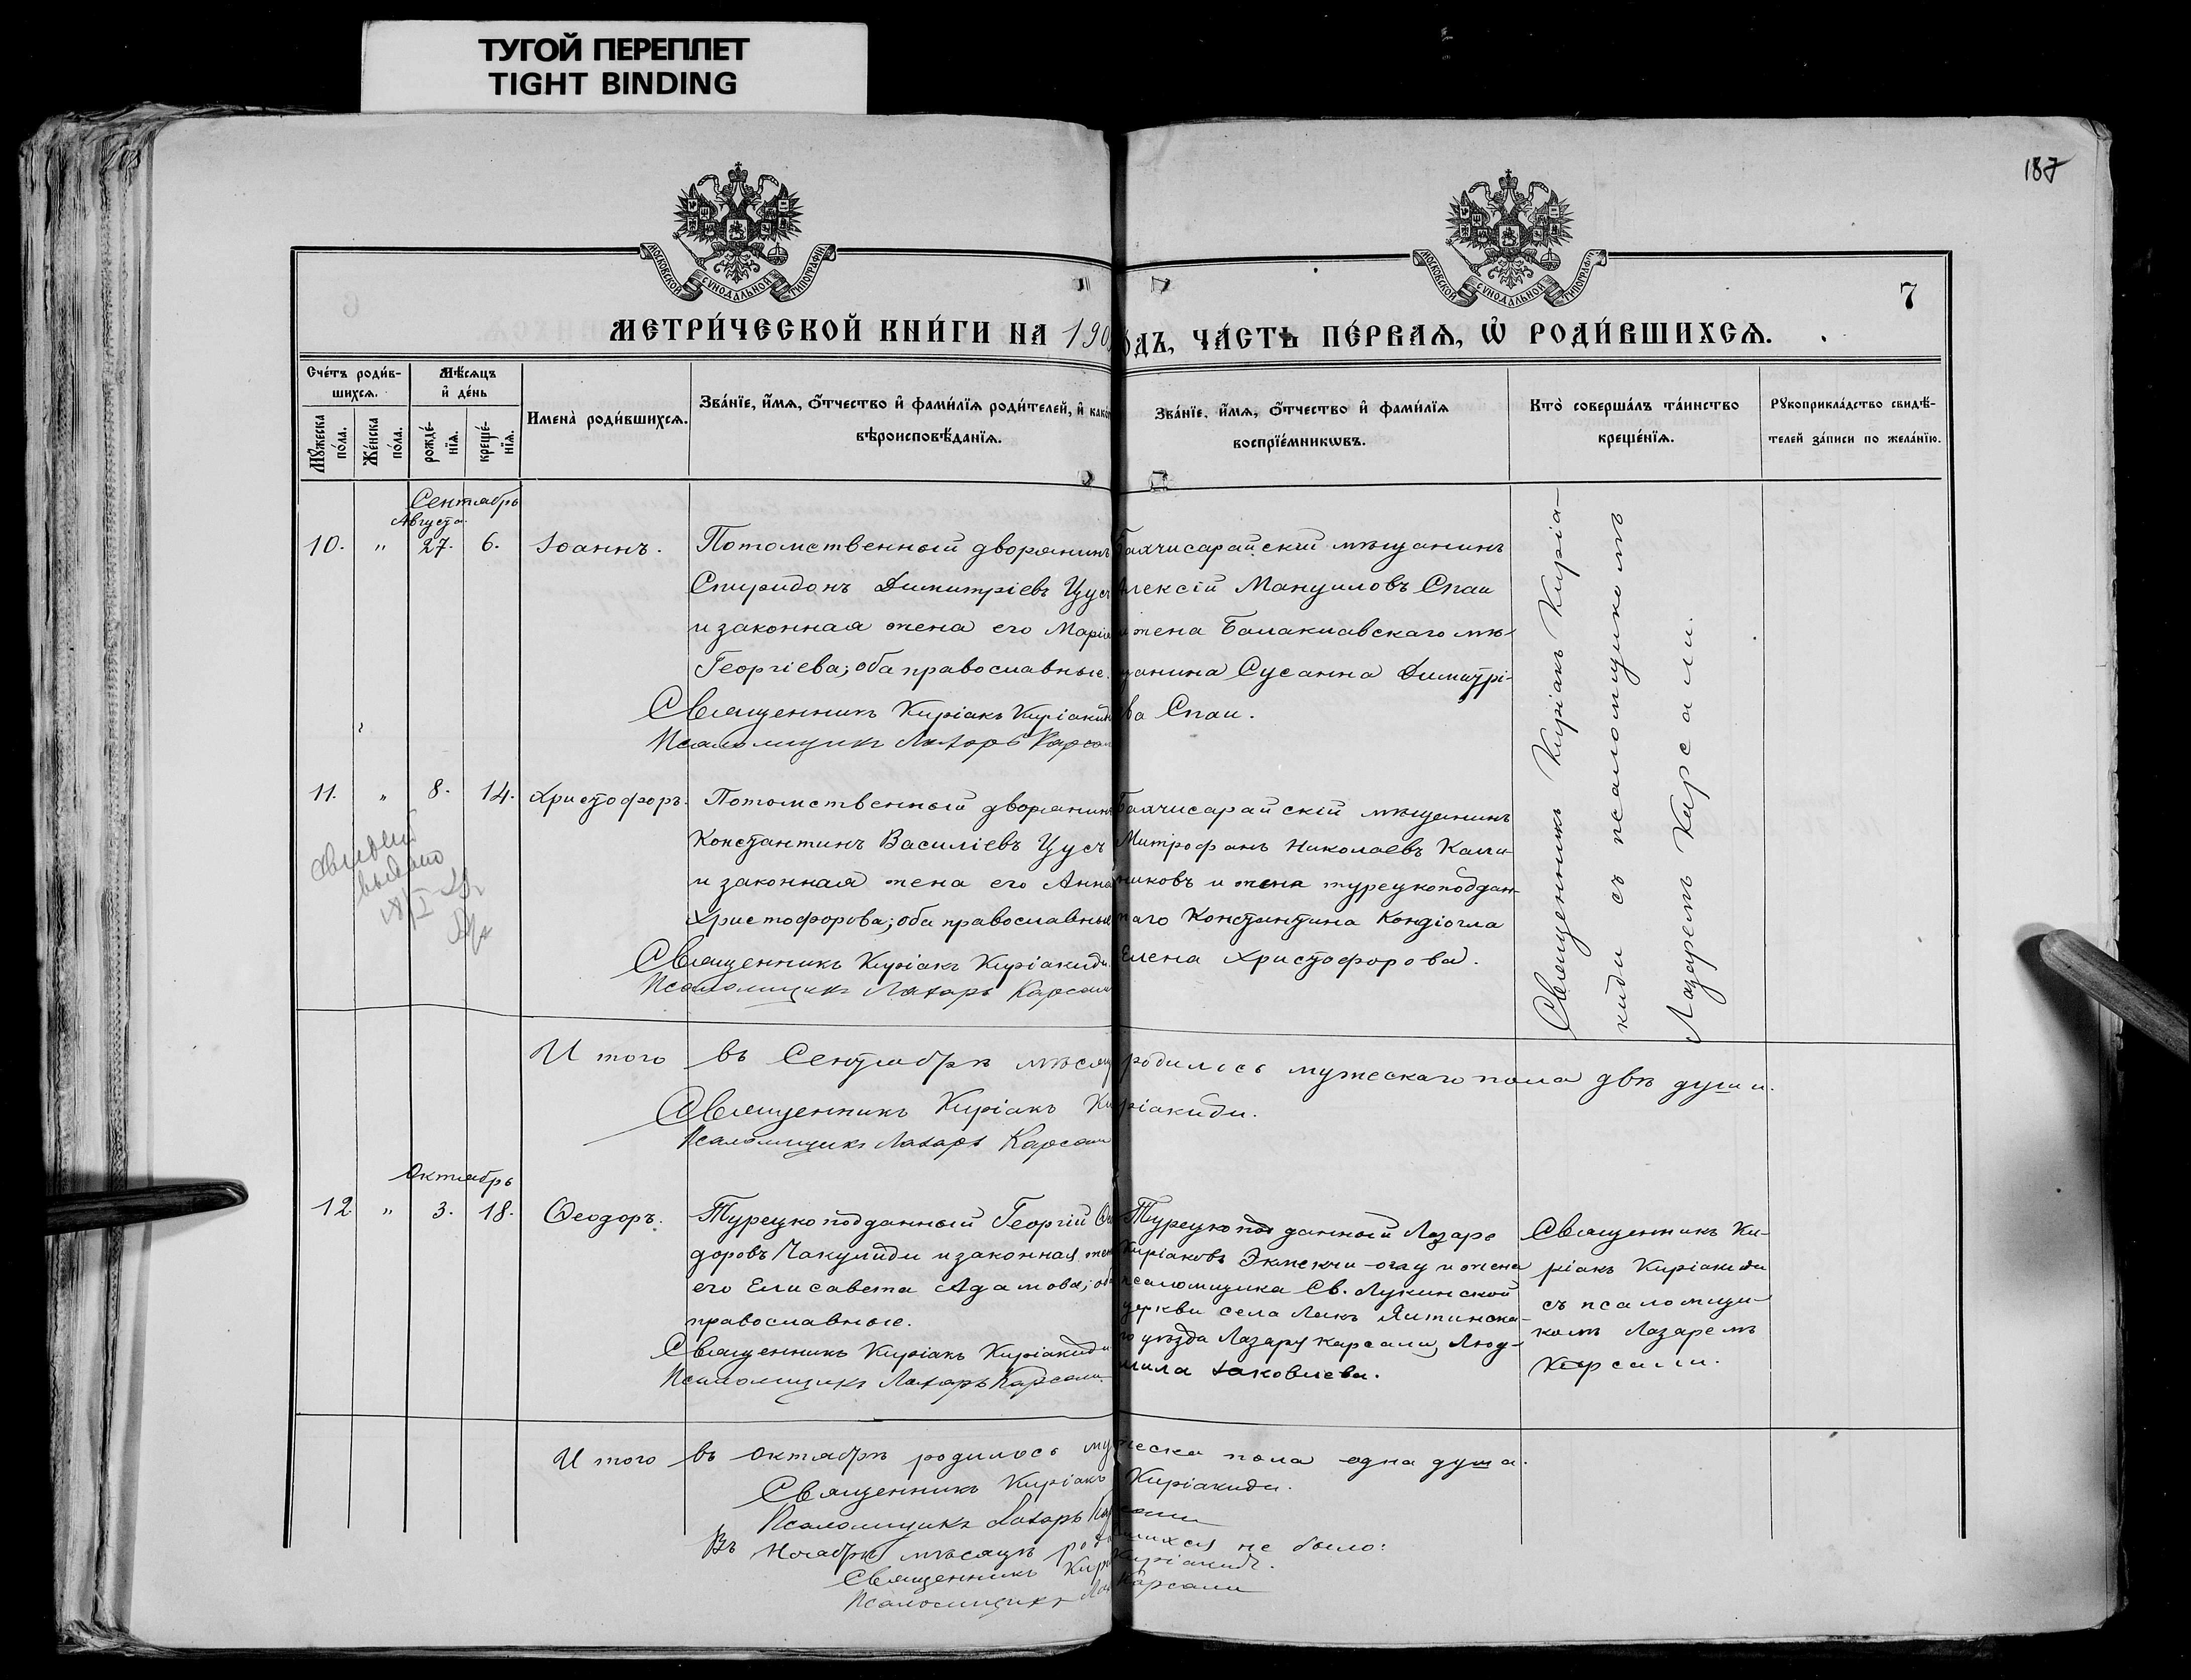 ТУГОЙ ПЕРЕПЛЕТ
TIGHT BINDING
187
МОСКОВСКОЙ СѴНОДАЛЬНОЙ ТИПОГРАФІИ
МОСКОВСКОЙ СѴНОДАЛЬНОЙ ТИПОГРАФІИ
7
МЕТРИ́ЧЕСКОЙ КНИ́ГИ НА 190 ОДЪ, ЧА́СТЬ ПЕ́РВАѦ, Ѡ҆ РОДИ́ВШИХСѦ.
Сче́тъ роди́в-
шихсѧ.
Мꙋ́жеска по́ла.
Же́нска по́ла.
Мѣ́сѧцъ
и҆ де́нь
рожде́-
нїѧ.
креще́-
нїѧ.
Имена̀ роди́вшихсѧ.
Зва́нїе, и҆́мѧ, ѻ҆́тчество и҆ фами́лїѧ роди́телей, и҆ како
вѣроисповѣ́данїѧ.
Зва́нїе, и҆́мѧ, ѻ҆́тчество и҆ фами́лїѧ
воспрїе́мникѡвъ.
Кто̀ соверша́лъ та́инство
креще́нїѧ.
Рꙋкоприкла́дство свидѣ́-
телей за́писи по жела́нїю.
Сентябрь
Августа
10. " 27. 6. Іоаннъ.
Потомственный дворянинъ
Спиридонъ Димитріевъ Цус
и законная жена его Марія
Георгіева; оба православные.
Священникъ Киріакъ Киріакиди
Псаломщикъ Лазарь Карсали
Бахчисарайскій мѣщанинъ
Алексій Мануиловъ Спаи
и жена Балаклавскаго мѣ-
щанина Сусанна Димитрі-
ва Спаи.
Священникъ Киріакъ Киріа-
киди съ псаломщикомъ
Лазаремъ Карсали.
11. " 8. 14. Христофоръ.
Потомственный дворянинъ
Константинъ Василіевъ Цус
и законная жена его Анна
Христофорова; оба православные
Священникъ Киріакъ Киріакиди.
Псаломщикъ Лазарь Карсали
Бахчисарайскій мѣщанинъ
Митрофанъ Николаевъ Кали-
никовъ и жена турецкоподдан-
наго Константина Кондіогла
Елена Христофорова.
выдано
И того въ Сентябрѣ мѣсяц родилось мужескаго пола двѣ души.
Священникъ Киріакъ Киріакиди.
Псаломщикъ Лазарь Карсали
Октябрь
12. " 3. 18. Ѳеодоръ.
Турецкоподданный Георгій Ѳе
доровъ Чакулиди и законная жен
его Елисавета Адамова; оба
православные.
Священникъ Киріакъ Киріакиди
Псаломщикъ Лазарь Карсали
Турецкоподданный Лазарь
Киріаковъ Экмекчи-оглу и жена
псаломщика Св. Лукинской
церкви села Лакъ Ялтинска-
го уѣзда Лазаря Карсали, Люд-
мила Іаковлева.
Священникъ Ки-
ріакъ Киріакиди
съ псаломщи-
комъ Лазаремъ
Карсали.
И того въ Октябрѣ родилось мужеска пола одна душа.
Священникъ Киріакъ Киріакиди.
Псаломщикъ Лазарь Карсали
Въ Ноябрѣ мѣсяцѣ родившихся не было:
Священникъ Киріакъ Киріакиди.
Псаломщикъ Лазарь Карсали